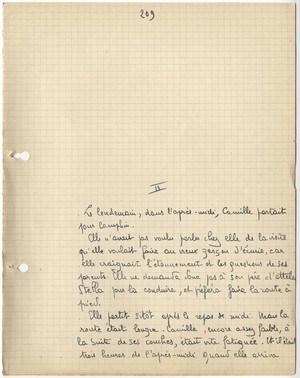 209
II
Le lendemain, dans l'après-midi, Camille partait
pour
Elle n'avait pas voulu parler chez elle de la visite
qu'elle voulait faire au vieux garçon d'écurie, car
elle craignait l'étonnement et les questions de ses
parents. Elle ne demanda donc pas à son père d'atteler
Stella pour la conduire, et préféra faire la route à
pied.
Elle partit sitôt après le repas de midi. Mais la
route était longue. Camille, encore assez faible, à
la suite de ses couches, était vite fatiguée. Et il était
trois heures de l'après-midi quand elle arriva